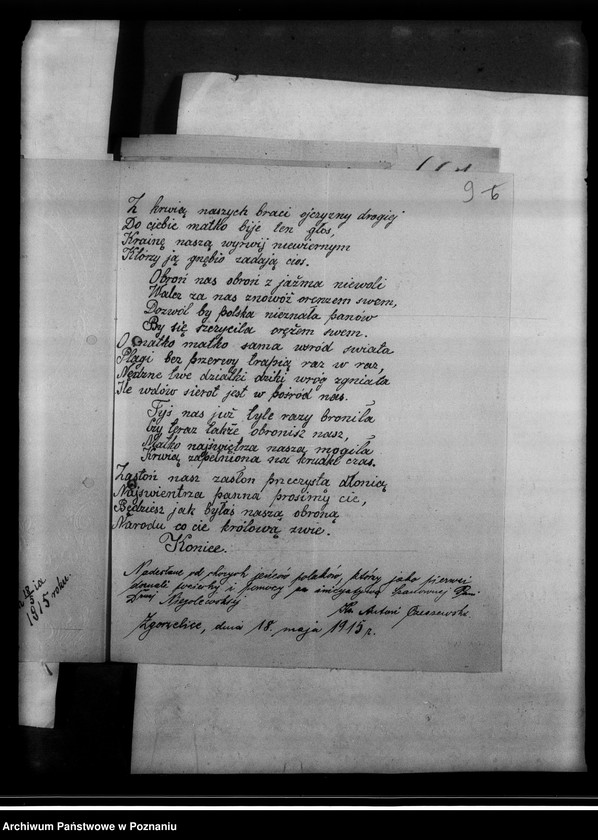 9 b
Z krwią naszych braci ojczyzny drogiej
Do ciebie matko bije ten głos,
Krainę naszą wyrwij niewiernym
Którzy ją gnębio zadają cios.
Obroń nas obroń z jażma niewoli
Walcz za nas znowóż orenzem swem,
Dozwól by polska nieznała panów
By się szczyciła orężem swem.
O matko matko sama wsród swiata
Plagi bez przerwy trapią raz w raz,
Nędzne twe dziatki dziki wróg zgniata
Ile wdów sierot jest w pośród nas.
Tyś nas już tyle razy broniła
Czy teraz także obronisz nasz,
Matko najświętrza nasza mogiła
Krwią zapełniona na krudke czas.
Zasłoń nasz zasłoń przeczysta dłonią
Najswientrza panna prosimy cie,
Będziesz jak byłaś naszą obroną
Narodu co cie królową zwie.
Koniec.
Nadesłane od chorych jeńców polaków, który jako pierwsi
doznali pociechy i pomocy za inicjatywą Szanownej Pani
Dnej Niegolewskiej
Ks. Antoni
Zgorzelice, dnia 18. maja 1915 r.
1915 roku.
Archiwum Państwowe w Poznaniu